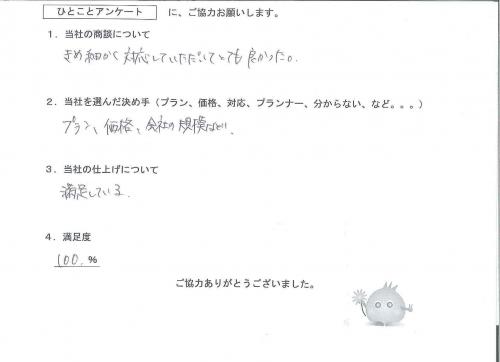 ひとことアンケート に、ご協力お願いします。
１．当社の商談について
きめ細かく対応していただいてとても良かった。
２．当社を選んだ決め手（プラン、価格、対応、プランナー、分からない、など。。。）
プラン、価格、会社の規模など。
３．当社の仕上げについて
満足している。
４．満足度
100.％
ご協力ありがとうございました。